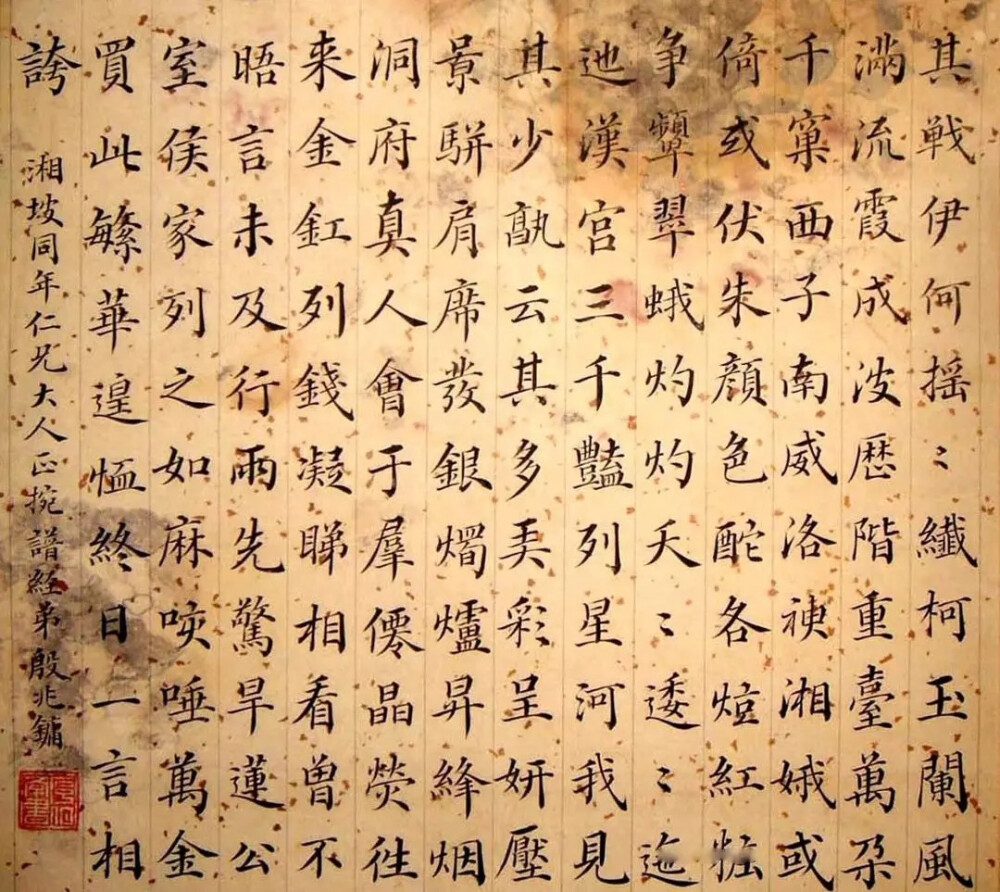 其戰伊何揺〻纖柯玉闌風
滿流霞成波歷階重臺萬朵
千窠西子南威洛神湘娥或
倚或伏朱顏色酡各炫紅粧
争顰翠蛾灼灼夭〻逶〻迤
迆漢宫三千豔列星河我見
其少孰云其多弄彩呈妍壓
景駢肩席發銀燭爐昇絳烟
洞府真人會于羣僊晶熒往
来金釭列錢凝睇相看曾不
晤言未及行雨先驚旱蓮公
室侯家列之如麻咳唾萬金
買此繁華遑恤終日一言相
誇
湘坡同年仁兄大人正捥譜經弟殷兆鏞